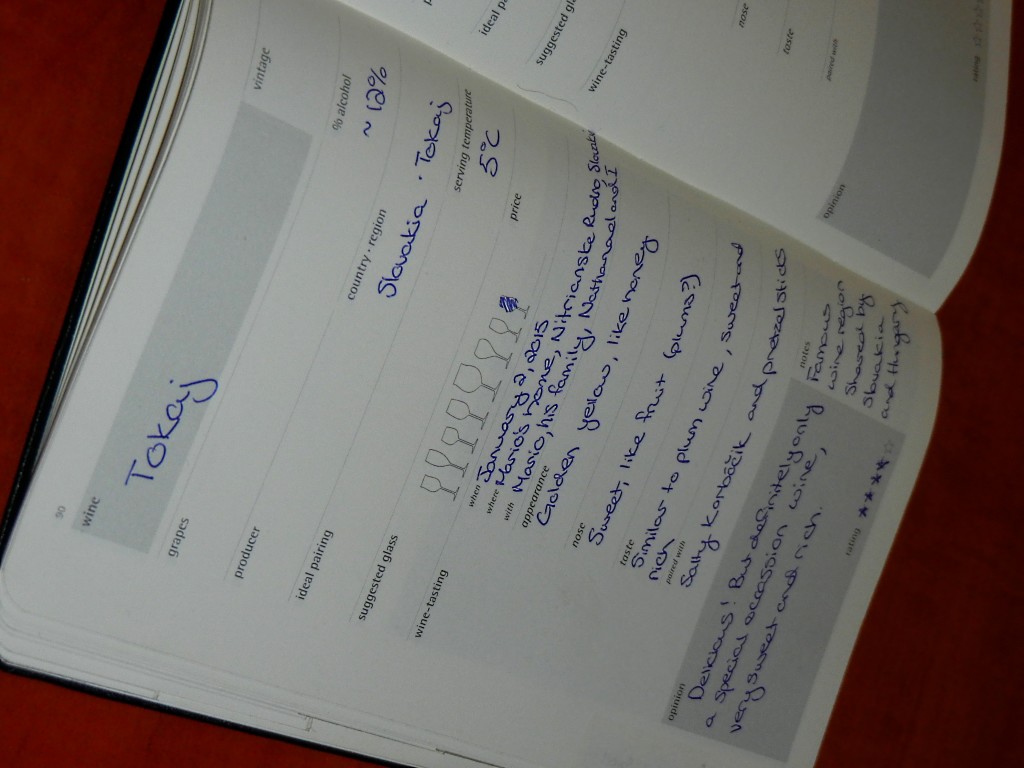 90
wine
Tokaj
grapes
vintage
producer
ideal pairing
country · region
% alcohol
~ 12%
Slovakia · Tokaj
suggested glass
serving temperature
5°C
wine-tasting
price
when January 2, 2015
where Mario's home, Nitrianske Rudno Slovakia
with Mario, his family, Nathanael and I
appearance
Golden yellow, like honey
nose
Sweet, like fruit (plums?)
taste
Similar to plum wine, sweet and
rich
paired with
Salty Korbáčik and pretzel sticks
opinion
Delicious! But definitely only
a special occassion wine,
very sweet and rich.
rating ★★★★
notes
Famous
wine region
shared by
Slovakia
and Hungary
ideal pa
suggested gla
wine-tasting
nose
taste
paired with
opinion
rating